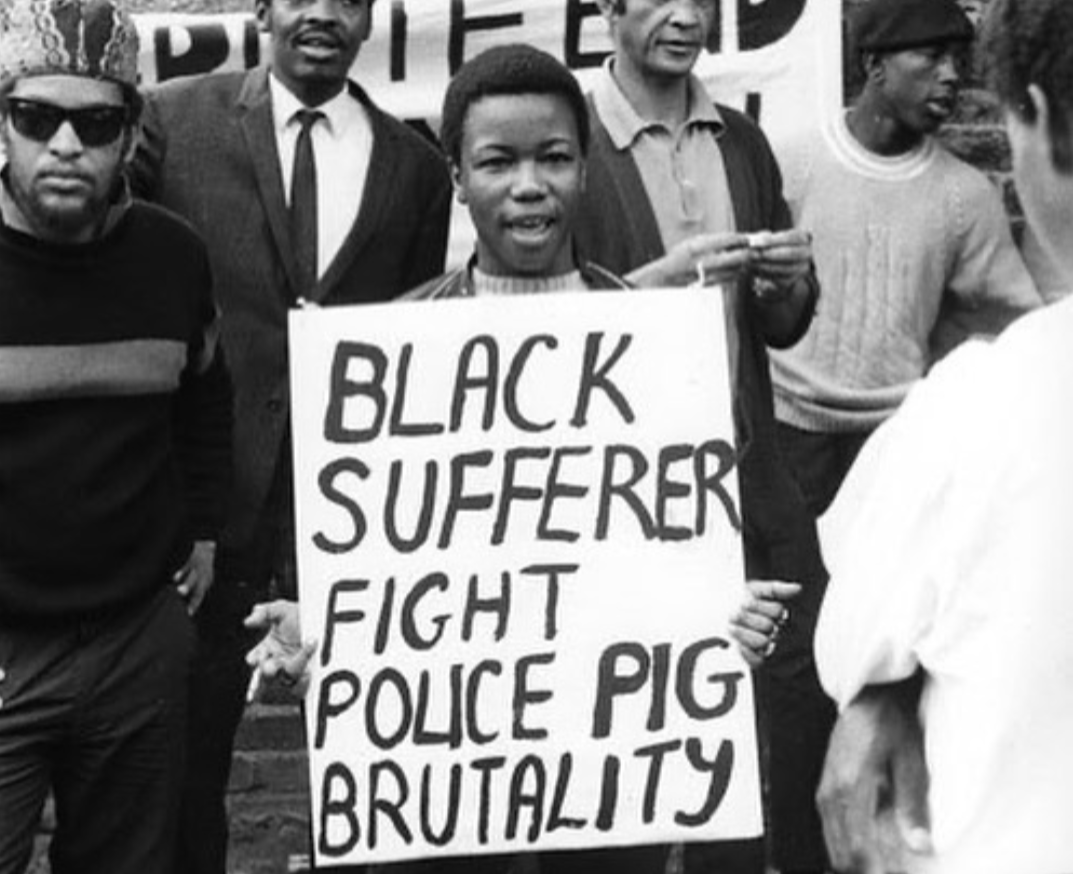 BLACK
SUFFERER
FIGHT
POLICE PIG
BRUTALITY